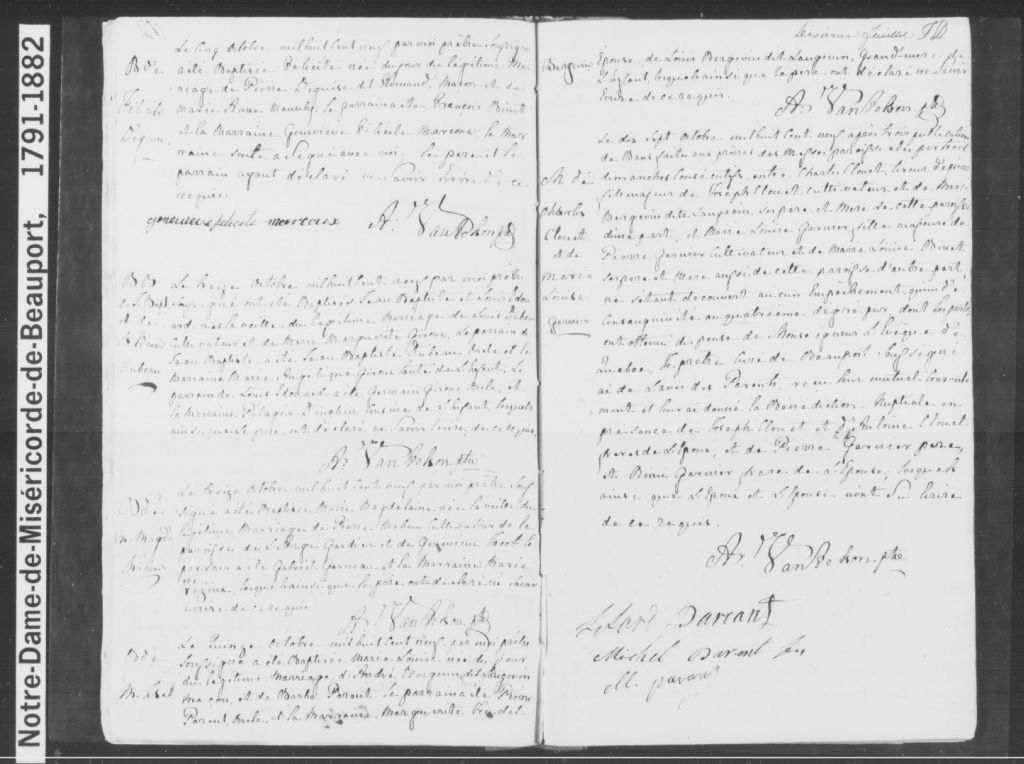 Notre-Dame-de-Miséricorde-de-Beauport, 1791-1882
Le Cinq Octobre mil huit Cent neuf par moi prêtre soussigné
B. de
a été Baptisée Félicité née du jour du légitime Mar
Félicité
riage de Pierre Deguise dit Flamand, Maçon et de
Marie Anne le parrain a été François Binet
et la Marraine Geneviève Félicité Marcoux; la Mar
raine seule a Signé avec moi. le pere et le
parrain ayant déclaré ne Savoir Ecrire de ce
requis.
genevieve felicite marcoux Ar. Van Felson ptre
Le Treize Octobre mil huit Cent neuf par moi prêtre
Soussigné ont été Baptisés Jean Baptiste et Louis Edou
ard nés la veille du légitime Mariage de Louis Dubeau
Cultivateur et de Marie Marguerite Giroux. Le parrain de
Dubeau
Jean Baptiste a été Jean Baptiste Dubeau Oncle et la
Marraine Marie Angélique Giroux tante de L'Enfant. Le
parrain de Louis Edouard a été Germain Giroux Oncle, et
la Marraine Pélagie Dauphin Cousine de L'Enfant, lesquels
ainsi que le pere ont déclaré ne Savoir Ecrire de ce requis.
Ar. Van Felson ptre
Le treize Octobre mil huit Cent neuf par moi prêtre Sous
B. de
signé a été Baptisée Marie Magdelaine née la veille du
légitime Marriage de Pierre Maheu Cultivateur de la
paroisse de L'Ange Gardien et de Geneviève Jacob le
Maheu
parrain a été Gabriel Garneau et la Marraine Marie
Vézina, lesquels ainsi que le pere ont déclaré ne Savoir
écrire de ce requis
Ar. Van Felson ptre
Le Quinze Octobre mil huit Cent neuf par moi prêtre
B. de
soussigné a été Baptisée Marie Louise née du jour
du légitime Marriage d'André Bergevin dit Langevin
maçon, et de Barbe Parent. le parrain a été Pierre
Parent Oncle, et la Marraine Marguerite Trudel
Sixième feuillet
Bergevin
Epouse de Louis Bergevin dit Langevin, Grand-mere de
L'Enfant, lesquels ainsi que le pere ont déclaré ne Savoir
Ecrire de ce requis.
Ar. Van Felson ptre
Le dix Sept Octobre mil huit Cent neuf après trois publications
de Bans faites aux prônes des Messes paroissiales par trois
dimanches Consécutifs, entre Charles Clouet,
M. de
fils majeur de Joseph Clouet cultivateur et de Marie
Charles
Bergevin dit Langevin ses pere et Mere de cette paroisse
Clouet
d'une part; et Marie Louise Garnier fille majeure de
et de
Pierre Garnier Cultivateur et de Marie Louise Binet
Maria
ses pere et Mere aussi de cette paroisse d'autre part;
Louise
ne s'étant découvert aucun Empêchement, qu'un de
Garnier
Consanguinité au quatrième degré pur dont les parties
ont obtenu dispense de Monseigneur L'Evêque de
Québec, Je prêtre Curé de Beauport Soussigné
ai de L'avis des Parents, reçu leur mutuel Consente
ment et leur ai donné la Bénédiction Nuptiale en
présence de Joseph Clouet et d'Antoine Clouet
peres de L'Epoux; et de Pierre Garnier pere,
et Rémi Garnier frere de L'Epouse; lesquels
ainsi que L'Epoux et L'Epouse n'ont Su Ecrire
de ce requis.
Ar. Van Felson ptre
Parant
Michel Parent
M. parant